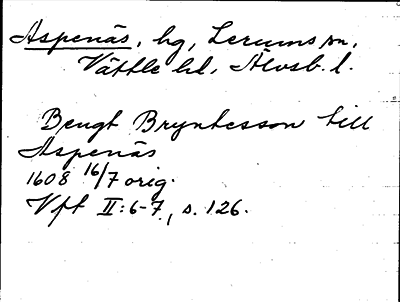 Aspenäs, hg, Lerums sn,
Vättle hd, Älvsb. l.
Bengt Bryntesson till
Aspenäs
1608 16/7 orig.
Vpf II:6-7, s. 126.